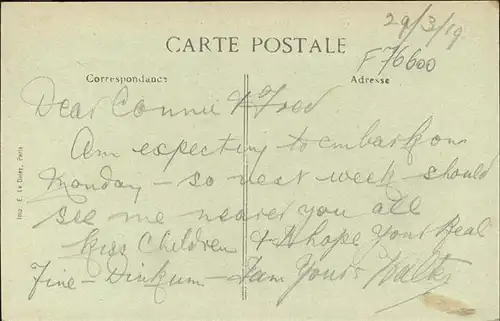 29/3/19
CARTE POSTALE
F 76600
Correspondance
Adresse
Dear Connie & Fred
Am expecting to embark on
Monday - so next week should
see me nearer you all
Kiss Children & A hope your Real
Fine - Dinkum - Yours Walt
Imp. E. Le Deley, Paris